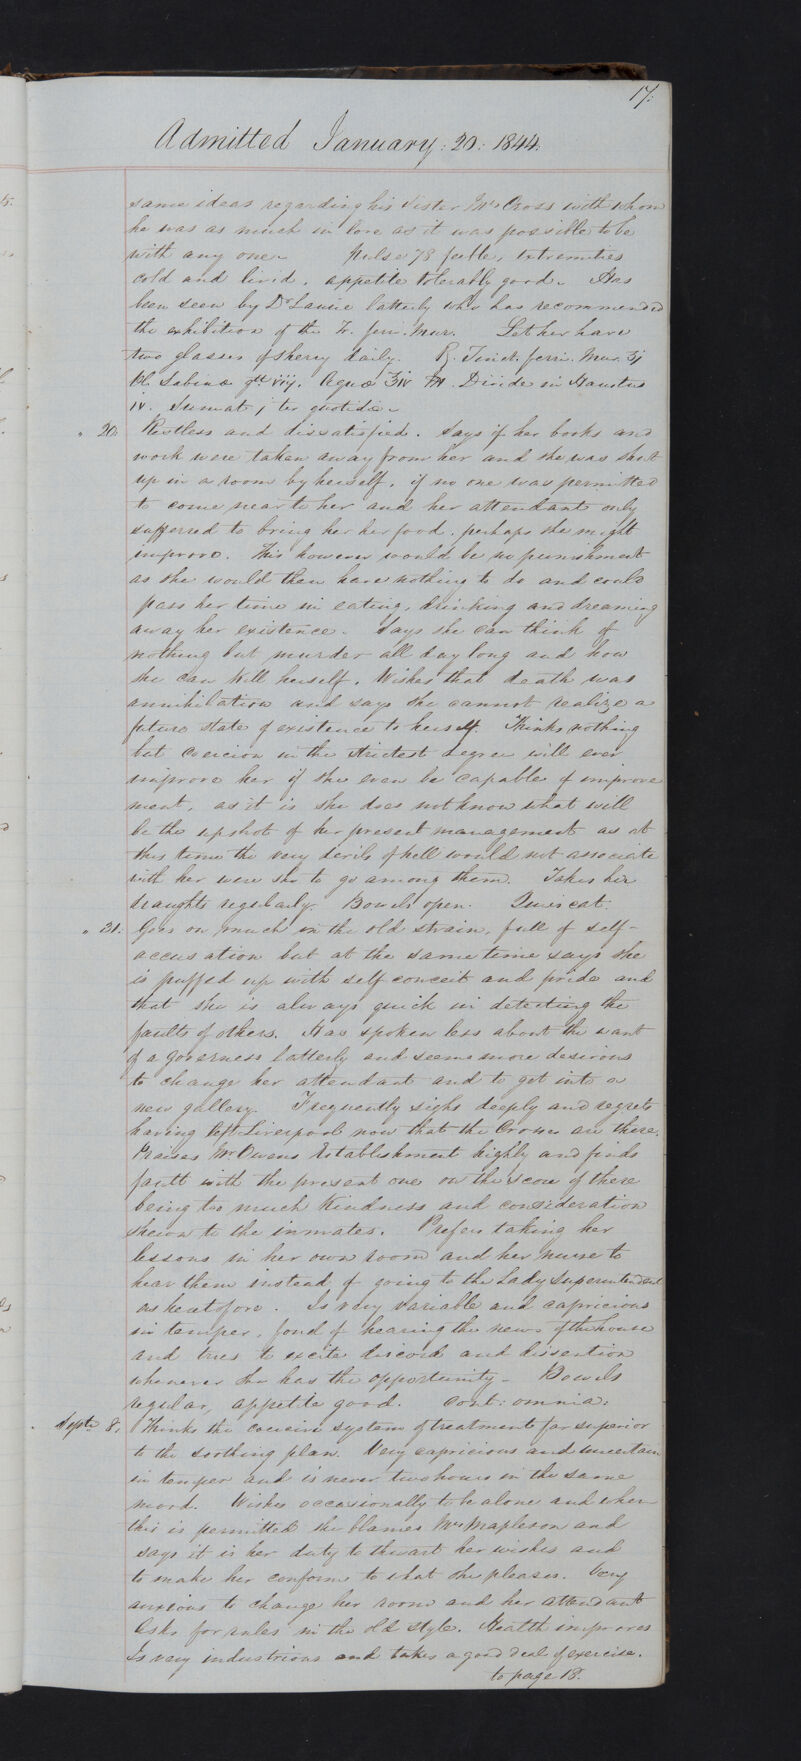 17.
Admitted January: 20: 1844.
same ideas regarding his Sister Mrs Cross with whom
he was as much in love as it was possible to be
with any one. Pulse 78 feeble, extremities
cold and livid, appetite tolerably good. Has
been seen by Dr Laurie latterly who has recommended
the exhibition of the Tr. ferri. Mur. Let her have
two glasses of sherry daily. R. Tinct. ferri. Mur. ʒj
Ol. Sabinae gtt viij. Aquae ℥iv M. Divide in Haustus
iv. Sumat j ter quotidie.
" 20. Restless and dissatisfied. Says if her books and
work were taken away from her and she was shut
up in a room by herself, if no one was permitted
to come near to her and her attendant only
sufferred to bring her her food, perhaps she might
improve. This however would be no punishment
as she would then have nothing to do and could
pass her time in eating, drinking and dreaming
away her existence. Says she can think of
nothing but murder all day long and how
she can kill herself. Wishes that death was
annihilation and says she cannot realize a
future state of existence to herself. Thinks nothing
but coercion in the strictest degree will ever
improve her if she even be capable of improve
ment, as it is she does not know what will
be the upshot of her present management as at
this time the very devils of hell would not associate
with her were she to go among them. Takes her
draughts regularly. Bowels open.
" 31. Goes on much in the old strain, full of self-
accusation but at the same time says she
is puffed up with self conceit and pride and
that she is always quick in detecting the
faults of others. Has spoken less about the want
of a governess latterly and seems more desirous
to change her attendant and to get into a
new gallery. Frequently sighs deeply and regrets
having left Liverpool now that the Crosses are there.
Praises Mr Owens Establishment highly and finds
fault with the present one on the score of there
being too much kindness and consideration
shewn to the inmates. Prefers taking her
lessons in her own room and her nurse to
hear them instead of going to the Lady Superintendent
as heretofore. Is very variable and capricious
in temper, fond of hearing the news of the house
and tries to excite discord and dissention
whenever she has the opportunity. Bowels
regular, appetite good. Cont: omnia.
Septr 8. Thinks the coercive system of treatment far superior
to the soothing plan. Very capricious and uncertain
in temper and is never two hours in the same
mood. Wishes occasionally to be alone and when
this is permitted she blames Mrs Mapleson and
says it is her duty to thwart her wishes and
to make her conform to what she pleases. Very
anxious to change her room and her attendant
Asks for rules in the old style. Health improves
Is very industrious and takes a good deal of exercise.
to page 18.